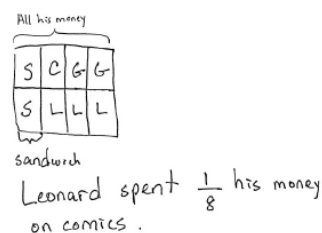 All his money
S C G G
S L L L
sandwich
Leonard spent 1/8 his money
on comics.